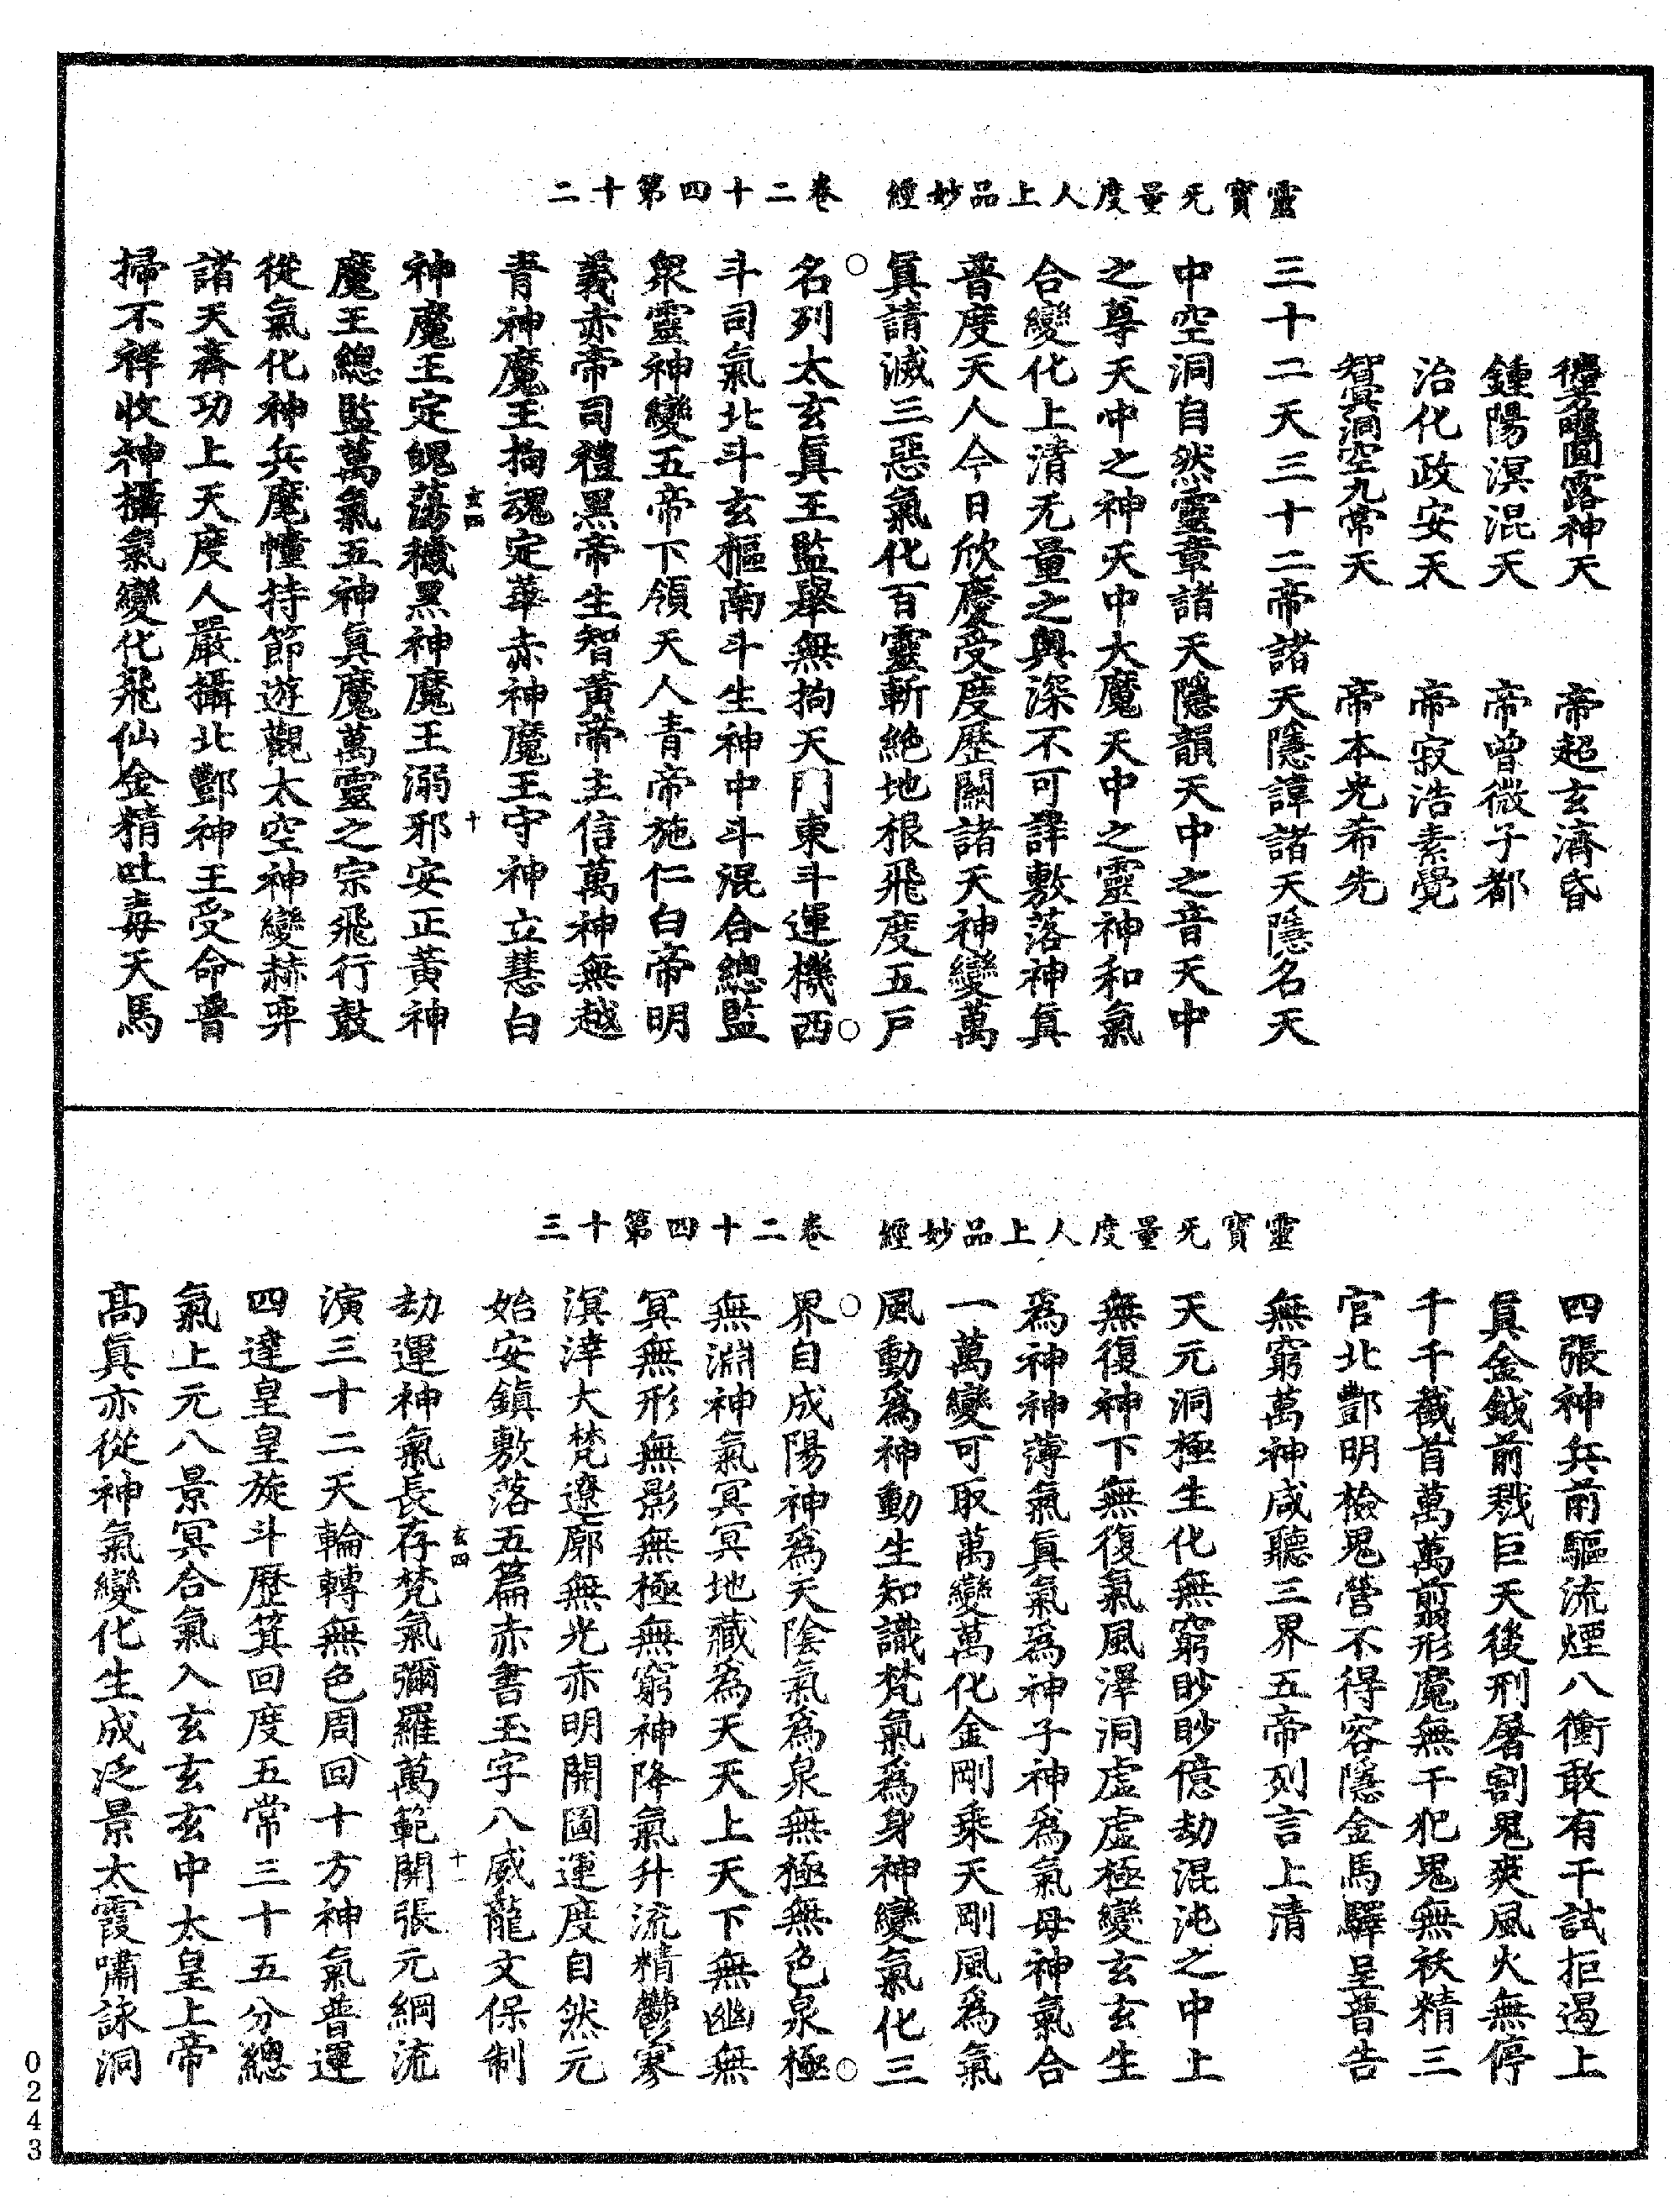 靈寶旡量度人上品妙經　卷二十四第十二
圓露神天　帝超玄濟昏
鍾陽溟混天　帝曾微子都
治化政安天　帝寂浩素覺
智真洞空九常天　帝本光希先
三十二天三十二帝諸天隱諱諸天隱名天
中空洞自然靈章諸天隱韻天中之音天中
之尊天中之神天中大魔天中之靈神和氣
合變化上清无量之輿深不可詳敷落神真
普度天人今日欣慶受度歷關諸天神變萬
真請滅三惡氣化百靈斬絶地根飛度五戶
名列太玄真王監舉無拘天門東斗運機西
斗司氣北斗玄樞南斗生神中斗混合總監
衆靈神變五帝下領天人青帝施仁白帝明
義赤帝司禮黑帝生智黃帝主信萬神無越
青神魔王拘魂定華赤神魔王守神立慧白
神魔王定魄蕩穢黑神魔王溺邪安正黃神
玄四
十
魔王總監萬氣五神真魔萬靈之宗飛行鼓
從氣化神兵麾幢持節遊觀太空神變赫弈
諸天齊功上天度人嚴攝北酆神王受命普
掃不祥收神攝氣變化飛仙金精吐毒天馬
靈寶旡量度人上品妙經　卷二十四第十三
四張神兵前驅流煙八衝敢有干試拒遏上
真金鉞前戮巨天後刑屠割鬼爽風火無停
千千截首萬萬翦形魔無干犯鬼無祅精三
官北酆明檢鬼營不得容隱金馬驛呈普告
無窮萬神咸聽三界五帝列言上清
天元洞極生化無窮眇眇億劫混沌之中上
無復神下無復氣風澤洞虛虛極變玄玄生
爲神神薄氣真氣爲神子神爲氣母神氣合
一萬變可取萬變萬化金剛乘天剛風爲氣
風動爲神動生知識梵氣爲身神變氣化三
界自成陽神爲天陰氣爲泉無極無色泉極
無淵神氣冥冥地藏爲天天上天下無幽無
冥無形無影無極無窮神降氣升流精鬱寥
溟涬大梵遼廓無光赤明開圖運度自然元
始安鎮敷落五篇赤書玉字八威龍文保制
劫運神氣長存梵氣彌羅萬範開張元綱流
玄四
十一
演三十二天輪轉無色周回十方神氣普運
四達皇皇旋斗歷箕回度五常三十五分總
氣上元八景冥合氣入玄玄玄中太皇上帝
高真亦從神氣變化生成泛景太霞嘯詠洞
0243